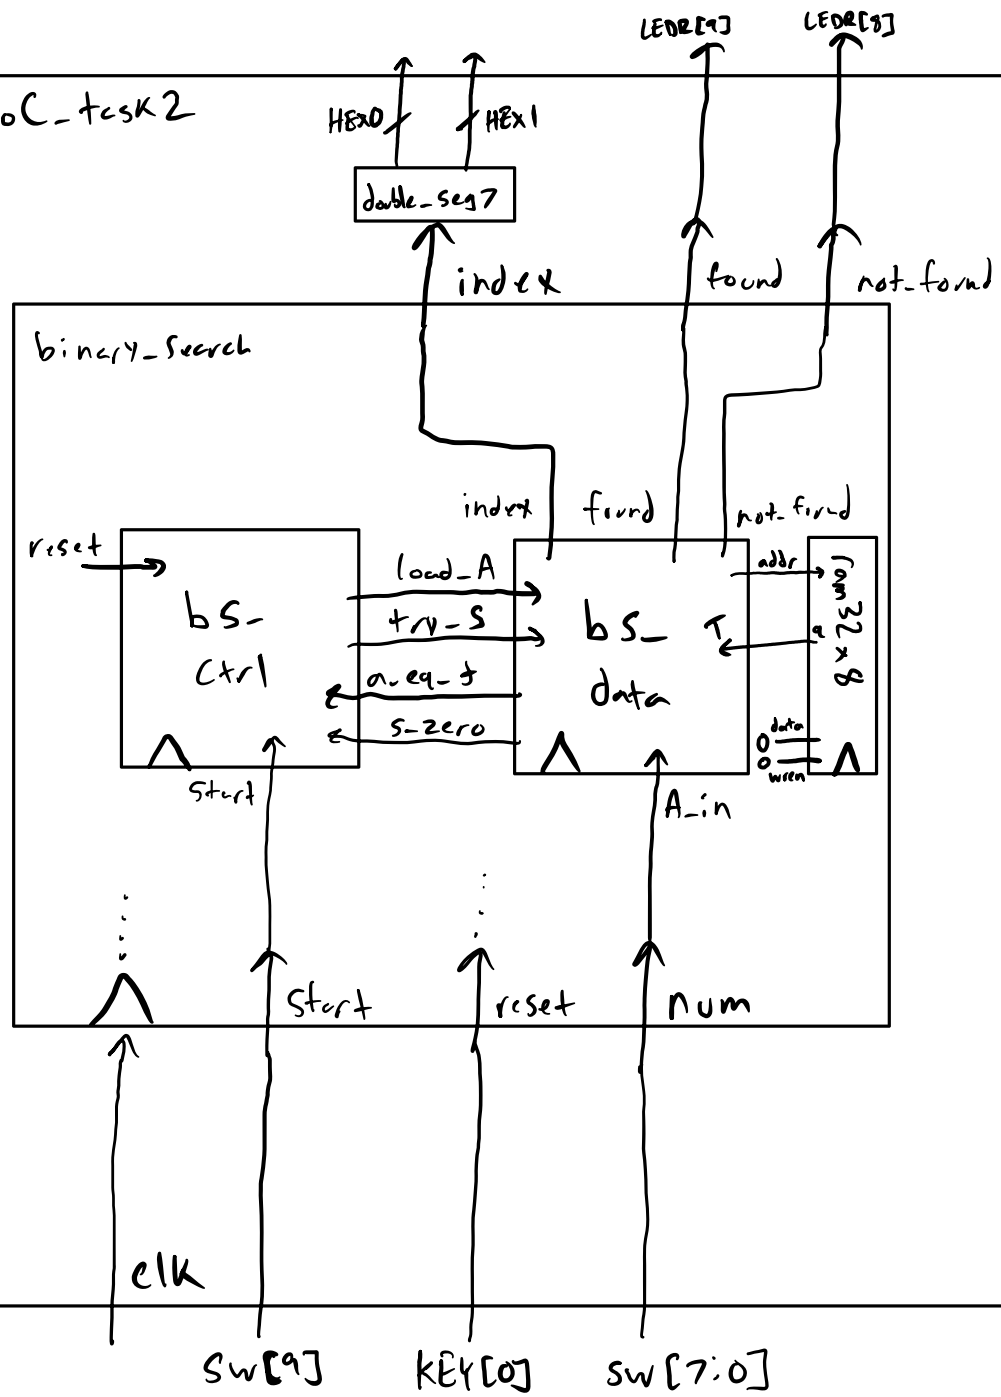 LEDR[9] LEDR[8]
oC_task2
HEX0 HEX1
double_seg7
index found not_found
binary_search
index found not_found
reset
load_A
addr
bs_
ctrl
try_S
bs_
data
T
q
rom32x8
a_eq_t
s_zero
0 data
0 wren
start
A_in
start reset num
clk
SW[9] KEY[0] SW[7:0]